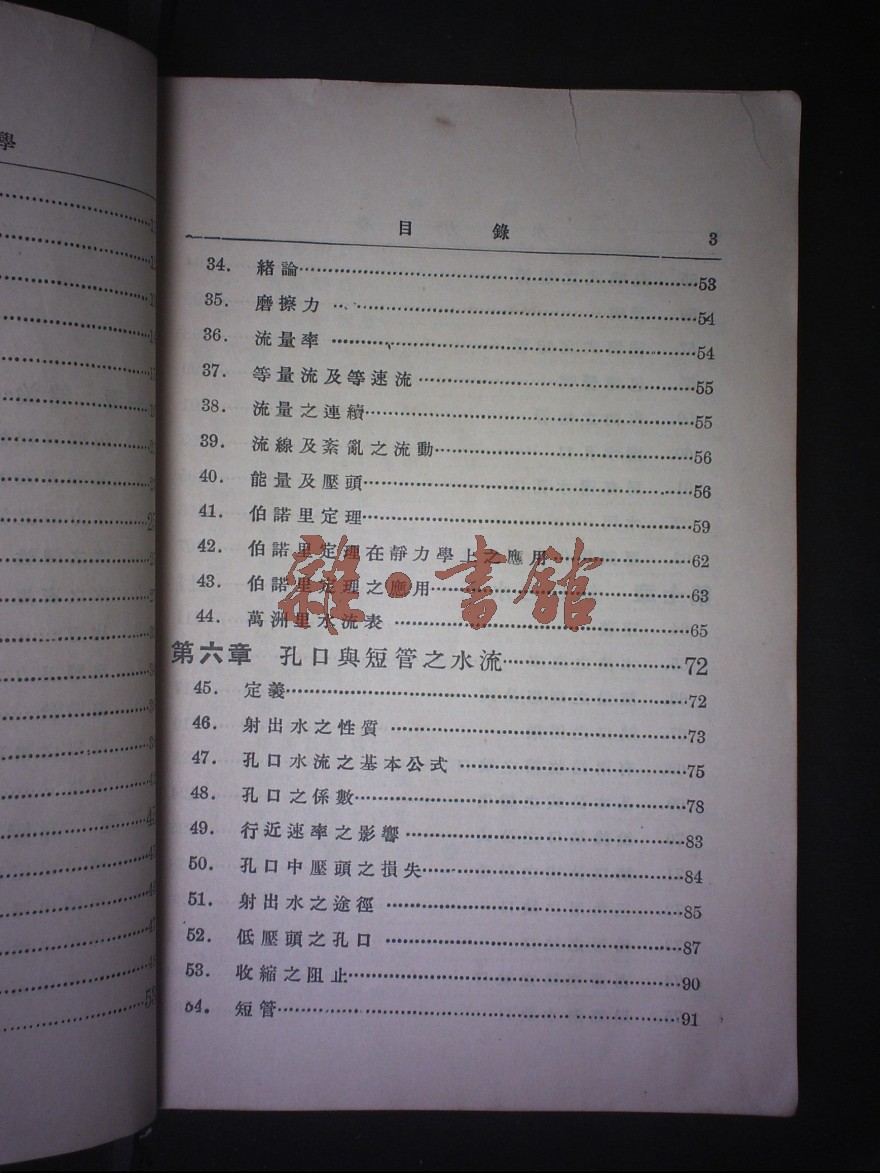 學
目 錄 3
34. 緒論 53
35. 磨擦力 54
36. 流量率 54
37. 等量流及等速流 55
38. 流量之連續 55
39. 流線及紊亂之流動 56
40. 能量及壓頭 56
41. 伯諾里定理 59
42. 伯諾里定理在靜力學上之應用 62
43. 伯諾里定理之應用 63
44. 萬洲里水流表 65
第六章 孔口與短管之水流 72
45. 定義 72
46. 射出水之性質 73
47. 孔口水流之基本公式 75
48. 孔口之係數 78
49. 行近速率之影響 83
50. 孔口中壓頭之損失 84
51. 射出水之途徑 85
52. 低壓頭之孔口 87
53. 收縮之阻止 90
54. 短管 91
雜·書館